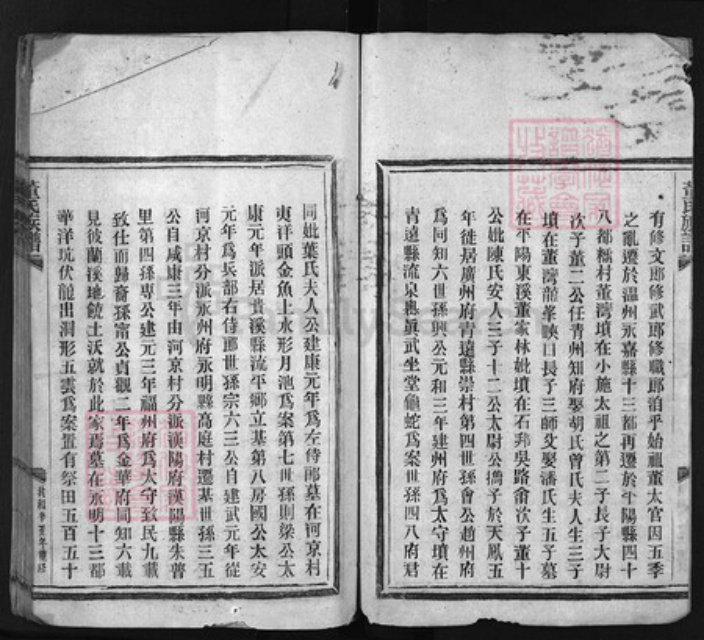 董氏族譜
有修文郎修武郎修職郎泊乎始祖董太官因五季
之亂遷於温州永嘉縣十三都再遷於平陽縣四十
八都糯村董灣墳在小施太祖之第二子長子大尉
次子董二公任青州知府娶胡氏曾氏夫人生三子
墳在董灣龍峯峽口長子三師爻娶潘氏生五子墓
在平陽東溪董家林妣墳在石郑吳路畲次子董十
公妣陳氏安人三子十二公太尉公擕子於天鳳五
年徙居廣州府青遠縣崇村第四世孫會公趙州府
爲同知六世孫興公元和三年建州府爲太守墳在
青遠縣流泉奥眞武坐堂龜蛇爲案世孫四八府君
同妣葉氏夫人公建康元年爲左侍郎墓在河京村
東洋頭金魚上水形月池爲案第七世孫則榮公太
康元年派居貴溪縣流平鄉立基第八房國公太安
元年爲兵部右侍郎世孫宗六三公自建武元年從
河京村分派永州府永明縣高庭村遷基世孫三五
公自咸康三年由河京村分派漢陽府漢陽縣朱普
里第四孫專公建元三年福州府爲太守致民九載
致仕而歸裔孫甯公貞觀二年爲金華府同知六載
見彼蘭溪地饒土沃就於此家焉墓在永明十三都
華洋坑伏龍出洞形五雲爲案置有祭田五百五十
董氏族譜